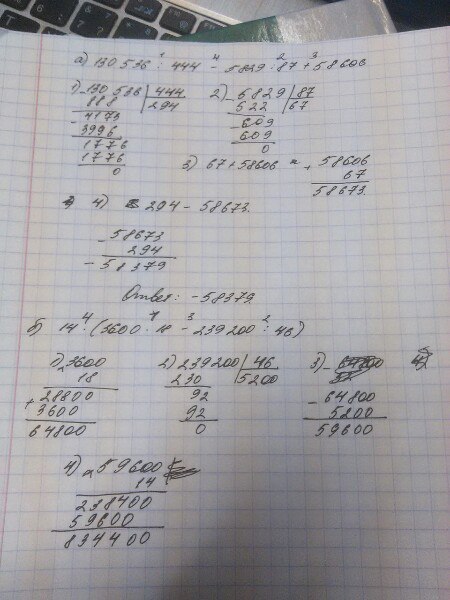 а) 130 536 : 444 - 5829 : 87 + 58606
1) 130 536 | 444 2) 5829 | 87
888 294 522 67
4173 609
3996 609
1776 0
1776
0
3) 67 + 58606 = 58606
+ 67
58673
4) 294 - 58673
- 58673
294
- 58379
Ответ: - 58379.
б) 14 · (3600 · 18 - 239200 : 46)
1) 3600 2) 239200 | 46 3) - 64800
18 230 5200 5200
+ 28800 92 59600
3600 92
64800 0
4) × 59600
14
238400
59600
834400